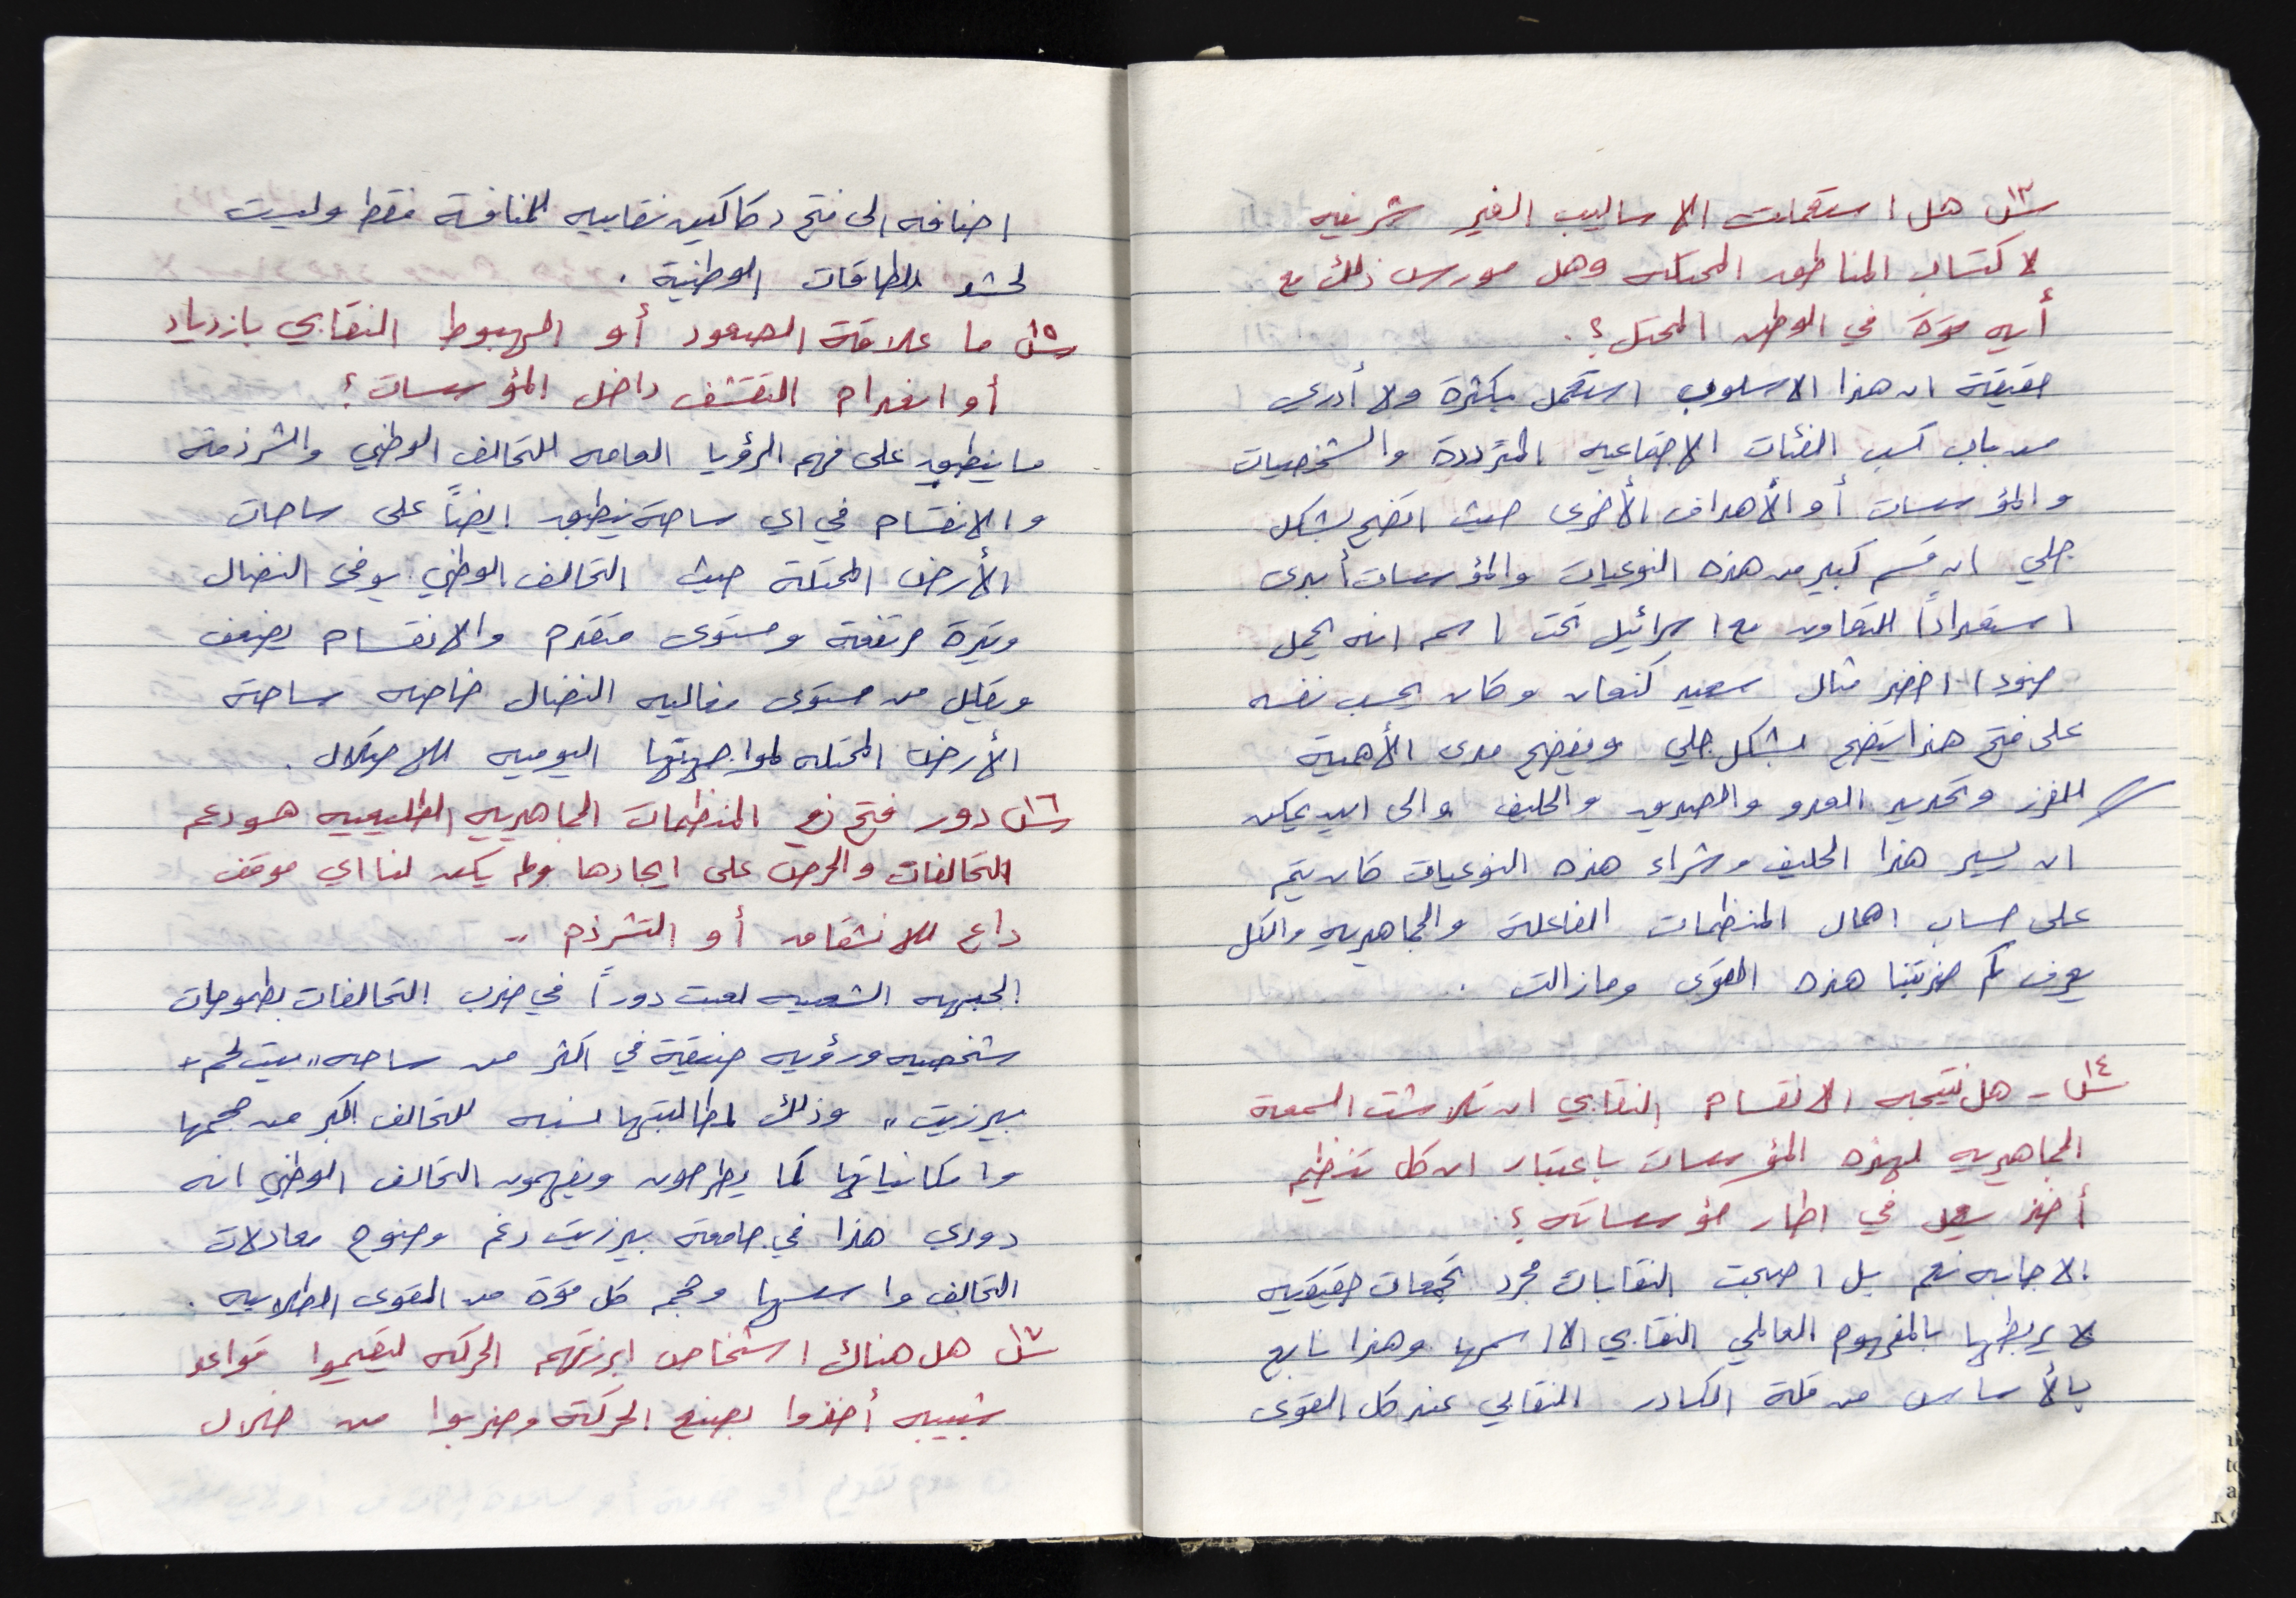 س١٣ هل استعملت الاساليب الغير شرعيه
لاكتساب المناطق المحتله وهل مورس ذلك مع
أيه قوة في الوطن المحتل؟.
حقيقة ان هذا الاسلوب استعمل بكثرة ولا أدري
من باب كسب الفئات الاجتماعيه المترددة والشخصيات
والمؤسسات أو الأهداف الأخرى حيث اتضح بشكل
جلي ان قسم كبير من هذه النوعيات والمؤسسات أبدى
استعداداً للتعاون مع اسرائيل تحت اسم انه يحمل
ضوءا اخضر مثال سعيد كنعان وكان يحسب نفسه
على فتح هذا يتضح بشكل جلي ويفضح مدى الأهمية
للفرز وتحديد العدو والصديق والحليف والى اين يمكن
ان يسير هذا الحليف وشراء هذه النوعيات كان يتم
على حساب اهمال المنظمات الفاعلة والجماهيريه والكل
يعرف كم ضربتنا هذه القوى ومازالت .
س١٤ - هل نتيجه الانقسام النقابي ان تلاشت السمعة
الجماهيريه لهذه المؤسسات باعتبار ان كل تنظيم
أخذ يعمل في اطار مؤسساته؟.
الاجابه نعم بل اصبحت النقابات مجرد تجمعات حقيقيه
لا يربطها بالمفهوم العالمي النقابي الا اسمها وهذا نابع
بالأساس من قلة الكادر النقابي عند كل القوى
اضافه الى فتح دكاكين نقابيه للمنافسة فقط وليست
لحشد للطاقات الوطنية .
س١٥ ما علاقة الصعود أو الهبوط النقابي بازدياد
أو انعدام التقشف داخل المؤسسات؟
ما ينطبق على فهم الرؤيا العامه للتحالف الوطني والشرذمة
والانقسام في اي ساحة ينطبق ايضاً على ساحات
الأرض المحتلة حيث التحالف الوطني يوفى النضال
وتيرة مرتفعة ومستوى متقدم والانقسام يضعف
ويقلل من مستوى فعاليه النضال خاصه ساحة
الأرض المحتله لمواجهتها اليوميه للاحتلال .
س١٦ دور فتح في المنظمات الجماهيريه الطليعيه هو دعم
التحالفات والحرص على ايجادها ولم يكن لنا اي موقف
داع للانشقاق أو التشرذم ..
الجبهه الشعبيه لعبت دوراً في ضرب التحالفات بطموحات
شخصيه ورؤيه ضيقة في اكثر من ساحه "بيت لحم +
بيرزيت" وذلك لمطالبتها نسبه للتحالف اكبر من حجمها
وامكانياتها كما يطرحون ويفهمون التحالف الوطني انه
دوري هذا في جامعة بيرزيت رغم وضوح معادلات
التحالف واسسها وحجم كل قوة من القوى الطلابيه .
س١٧ هل هناك اشخاص ابرزتهم الحركه ليقيموا قواعد
شبيبه أخذوا بصنع الحركة وضربوا من خلال